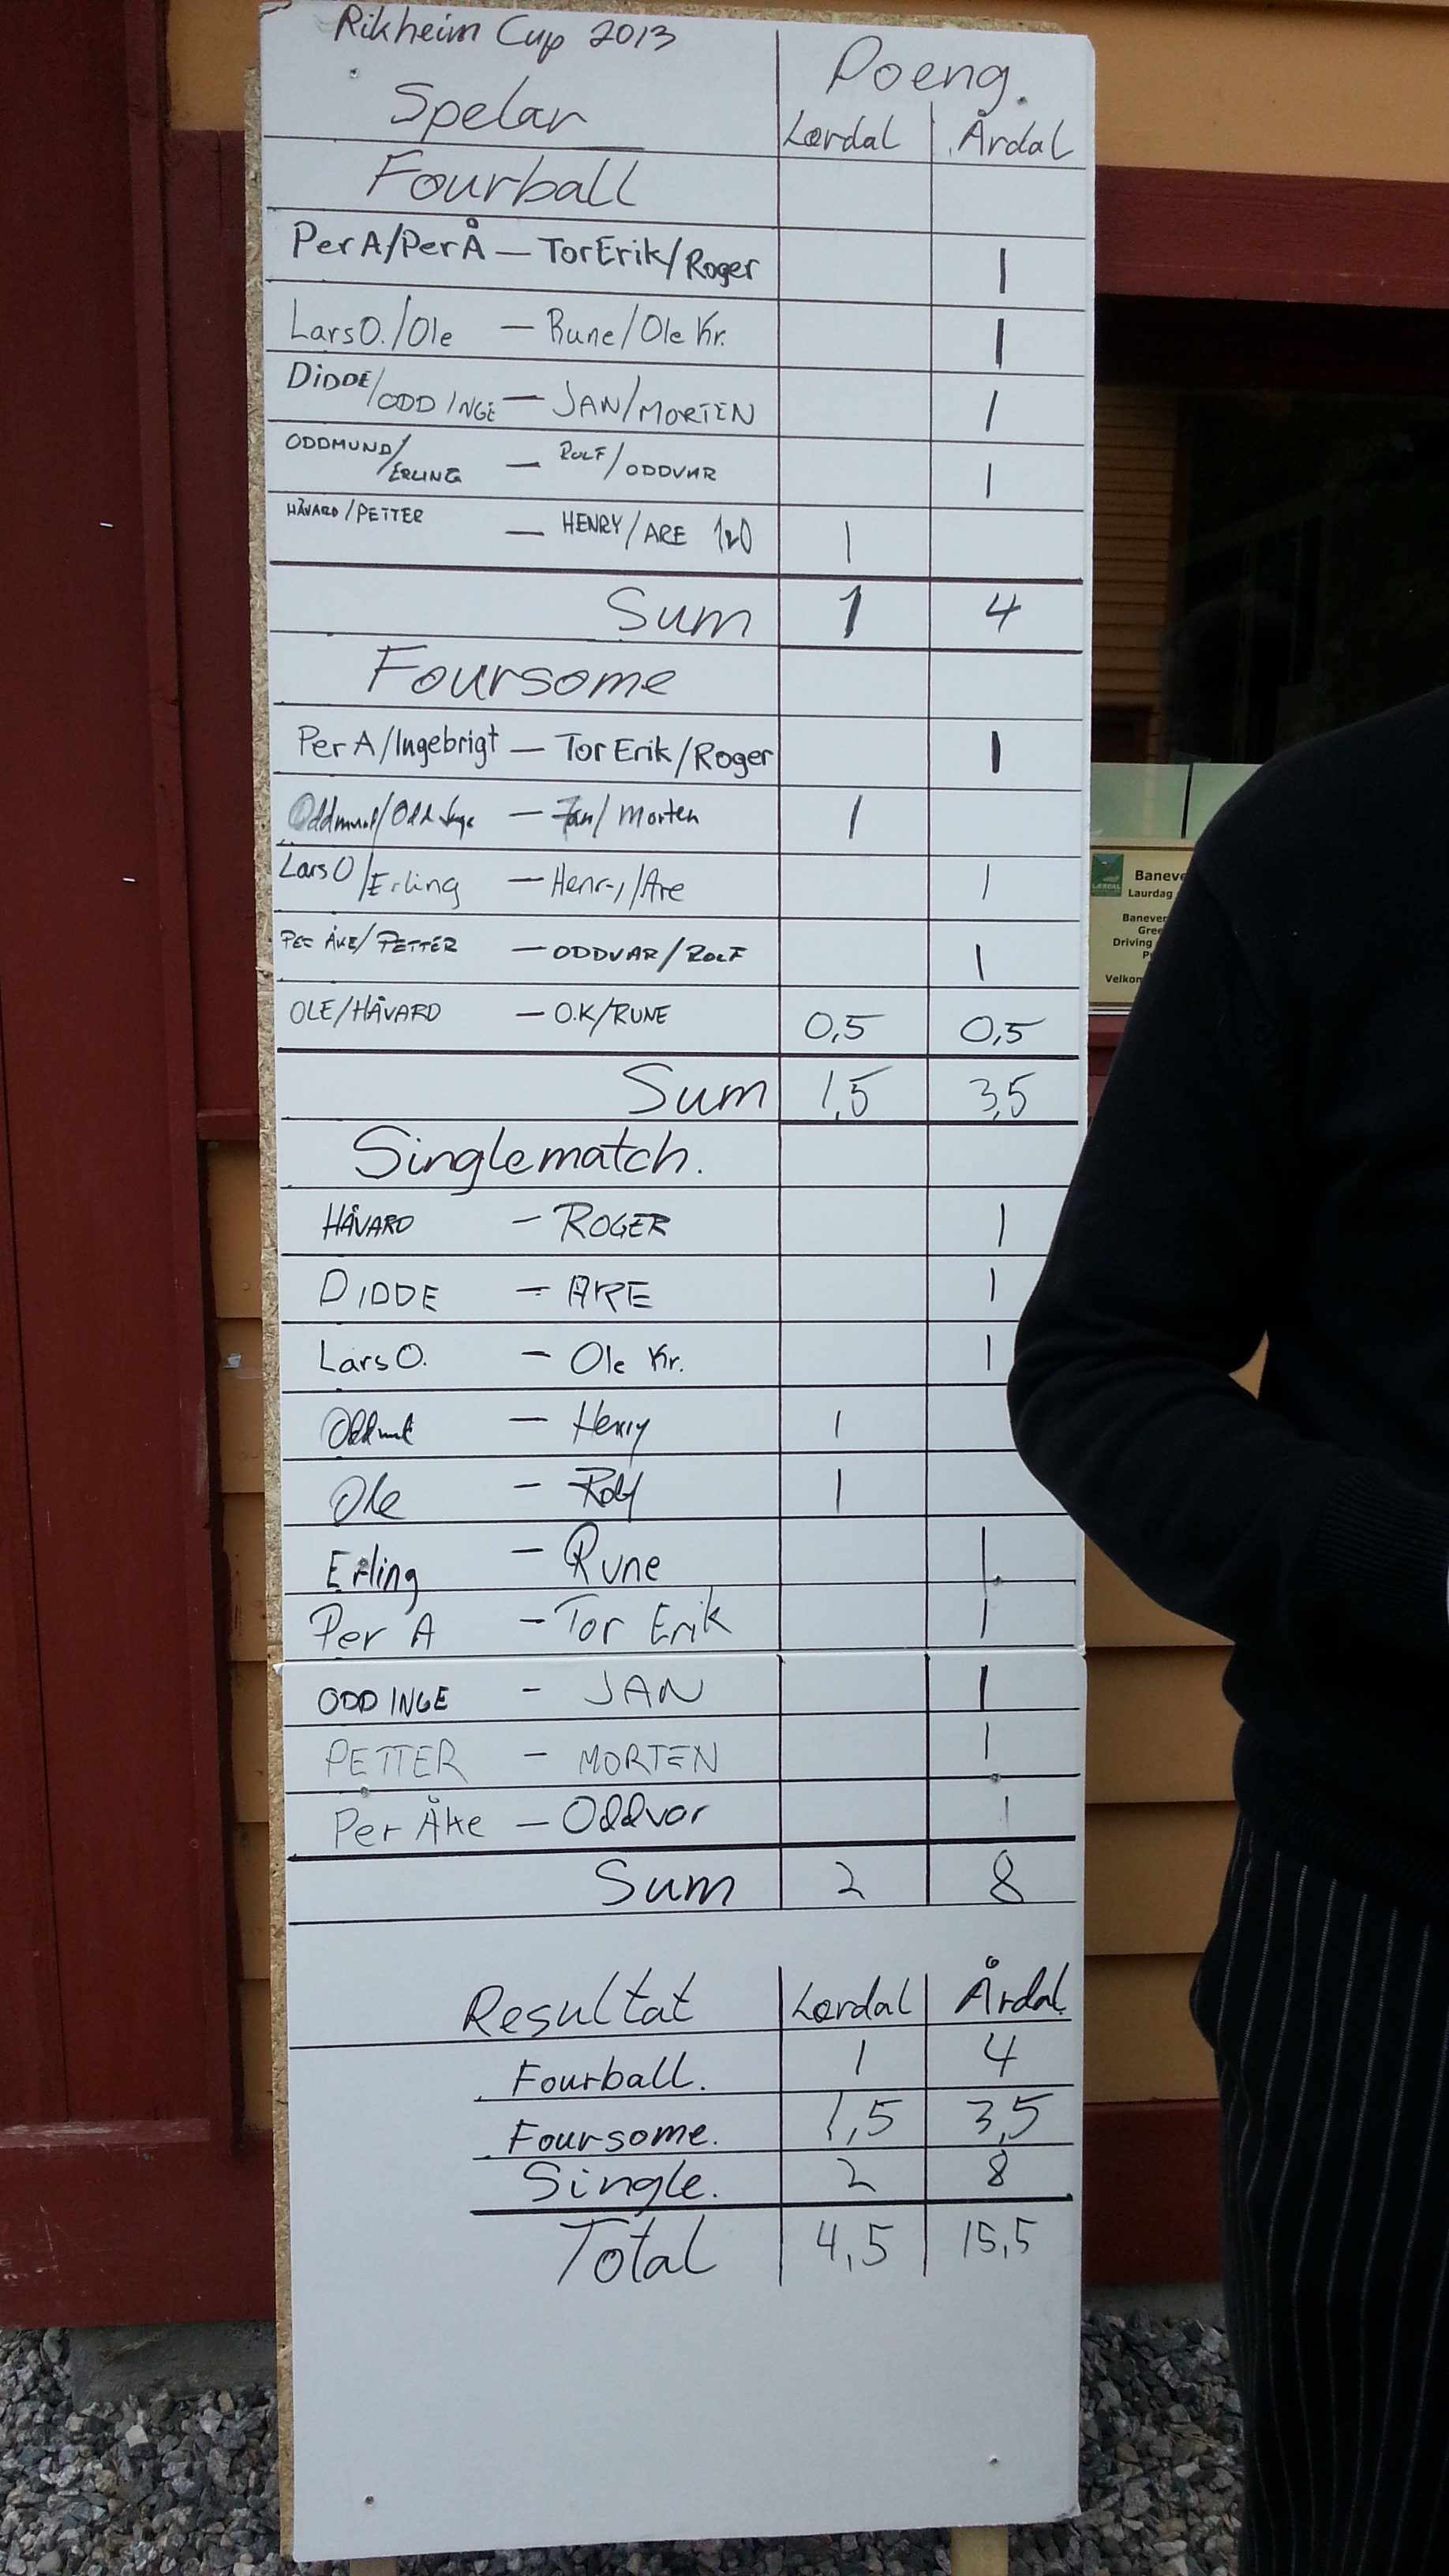 Rikheim Cup 2013
Poeng.
Spelar
Lærdal Årdal
Fourball
Per A/Per Å — Tor Erik/Roger 1
Lars O./Ole — Rune/Ole Kr. 1
DIDDE/ODD INGE — JAN/MORTEN 1
ODDMUND/ERLING — ROLF/ODDVAR 1
HÅVARD/PETTER — HENRY/ARE 1
Sum 1 4
Foursome
Per A/Ingebrigt — Tor Erik/Roger 1
Oddmund/Odd Inge — Jan/Morten 1
Lars O/Erling — Henry/Are 1
PER ÅKE/PETTER — ODDVAR/ROLF 1
OLE/HÅVARD — O.K/RUNE 0,5 0,5
Sum 1,5 3,5
Singlematch.
HÅVARD — ROGER 1
DIDDE — ARE 1
Lars O. — Ole Kr. 1
— Henry 1
Ole — Rolf 1
Erling — Rune 1
Per A — Tor Erik 1
ODD INGE — JAN 1
PETTER — MORTEN 1
Per Åke — Oddvar 1
Sum 2 8
Resultat Lærdal Årdal
Fourball. 1 4
Foursome. 1,5 3,5
Single. 2 8
Total 4,5 15,5
LÆRDAL
Baneve
Laurdag
Banever
Gree
Driving
Velkon